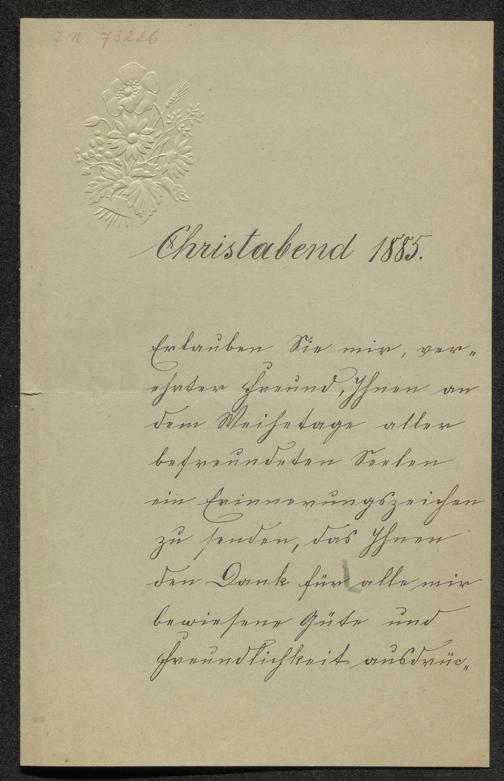 I. N. 73226
Christabend 1885.
Erlauben Sie mir, ver-
ehrter Freund, Ihnen an
dem Weihetage aller
befreundeten Seelen
ein Erinnerungszeichen
zu senden, das Ihnen
den Dank für alle mir
bewiesene Güte und
Freundlichkeit ausdrüc-